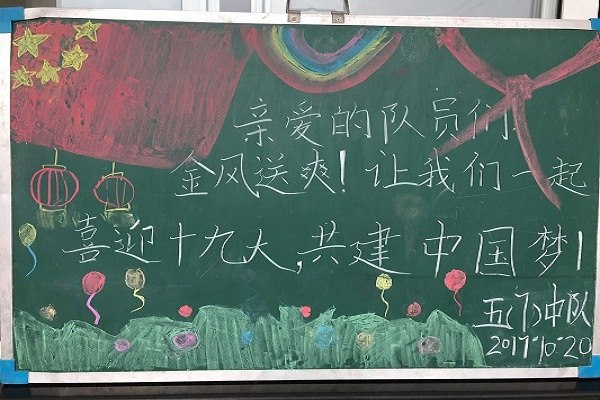 亲爱的队员们
金风送爽!让我们一起
喜迎十九大,共建中国梦!
五(7)中队
2017.10.20